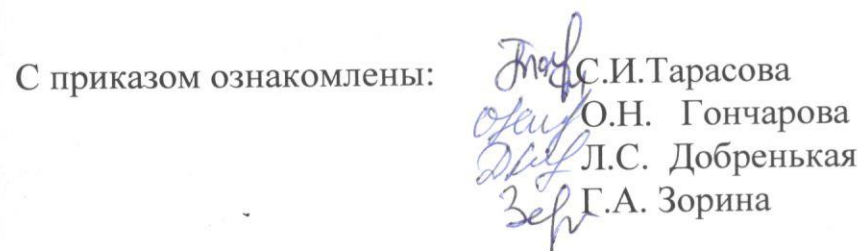 С приказом ознакомлены: С.И.Тарасова
О.Н. Гончарова
Л.С. Добренькая
Г.А. Зорина